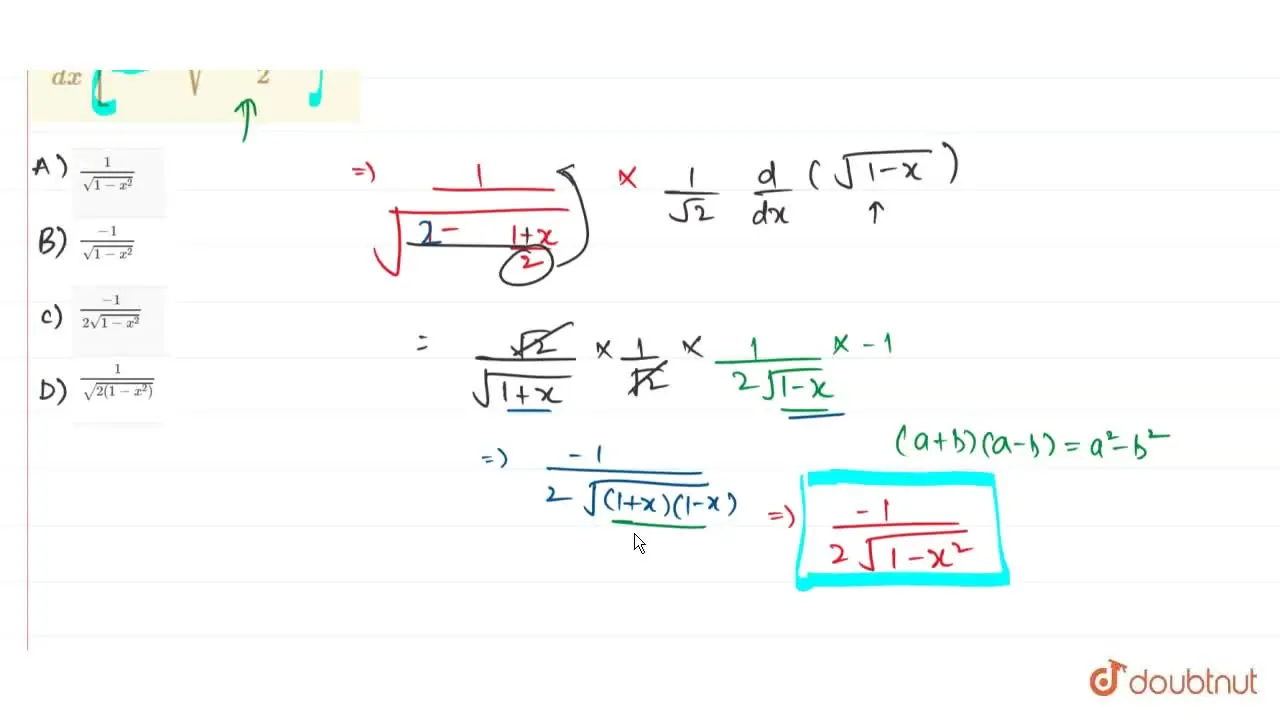 dx [ √ 2 ]
A) 1/√(1 − x²)
B) −1/√(1 − x²)
C) −1/(2√(1 − x²))
D) 1/√(2(1 − x²))
=) 1/√(2 − 1+x/2) × 1/√2 d/dx (√(1−x))
= √2/√(1+x) × 1/√2 × 1/(2√(1−x)) × −1
(a+b)(a−b) = a²−b²
=) −1/(2√((1+x)(1−x))) =) −1/(2√(1−x²))
doubtnut